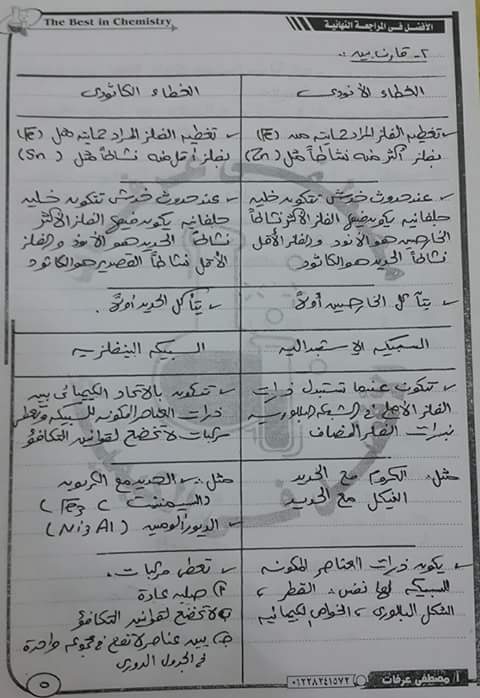 The Best in Chemistry
الأفضل فى المراجعة النهائية
٢- قارن بين :
الغطاء الأنودى
الغطاء الكاثودى
تغطيه الفلز المراد حمايته من (Fe)
بفلز أكثر منه نشاطاً مثل (Zn)
تغطيه الفلز المراد حمايته مثل (Fe)
بفلز أقل منه نشاطاً مثل (Sn)
عند حدوث خدش تتكون خليه
جلفانيه يكون فيها الفلز الأكثر نشاطاً
الخارصين هو الأنود والفلز الأقل
نشاطاً الحديد هو الكاثود
عند حدوث خدش تتكون خليه
جلفانيه يكون فيها الفلز الأكثر
نشاطاً الحديد هو الأنود والفلز
الأقل نشاطاً القصدير هو الكاثود
يتآكل الخارصين أولاً
يتآكل الحديد أولاً .
السبيكه الإستبداليه
السبيكه البينفلزيه
تتكون عندما تستبدل ذرات
الفلز الأصلى فى الشبكه البللوريه
بذرات الفلز المضاف
تتكون بالاتحاد الكيميائى بين
ذرات العناصر المكونه للسبيكه وتعطى
مركبات لا تخضع لقوانين التكافؤ
مثل: الكروم مع الحديد
النيكل مع الحديد
مثل :- الحديد مع الكربون
(السيمنتيت Fe3C)
الديورألومين (Ni3Al)
يكون ذرات العناصر المكونه
للسبيكه لها نفس: القطر ،
الشكل البللورى ، الخواص الكيميائيه
تعطى مركبات :-
أ) صلبه عادة
ب) لا تخضع لقوانين التكافؤ
ج) بين عناصر لا تقع فى مجموعه واحدة
فى الجدول الدورى
٥
أ/ مصطفى عرفات ٠١٢٢٨٢٤١٥٧٢